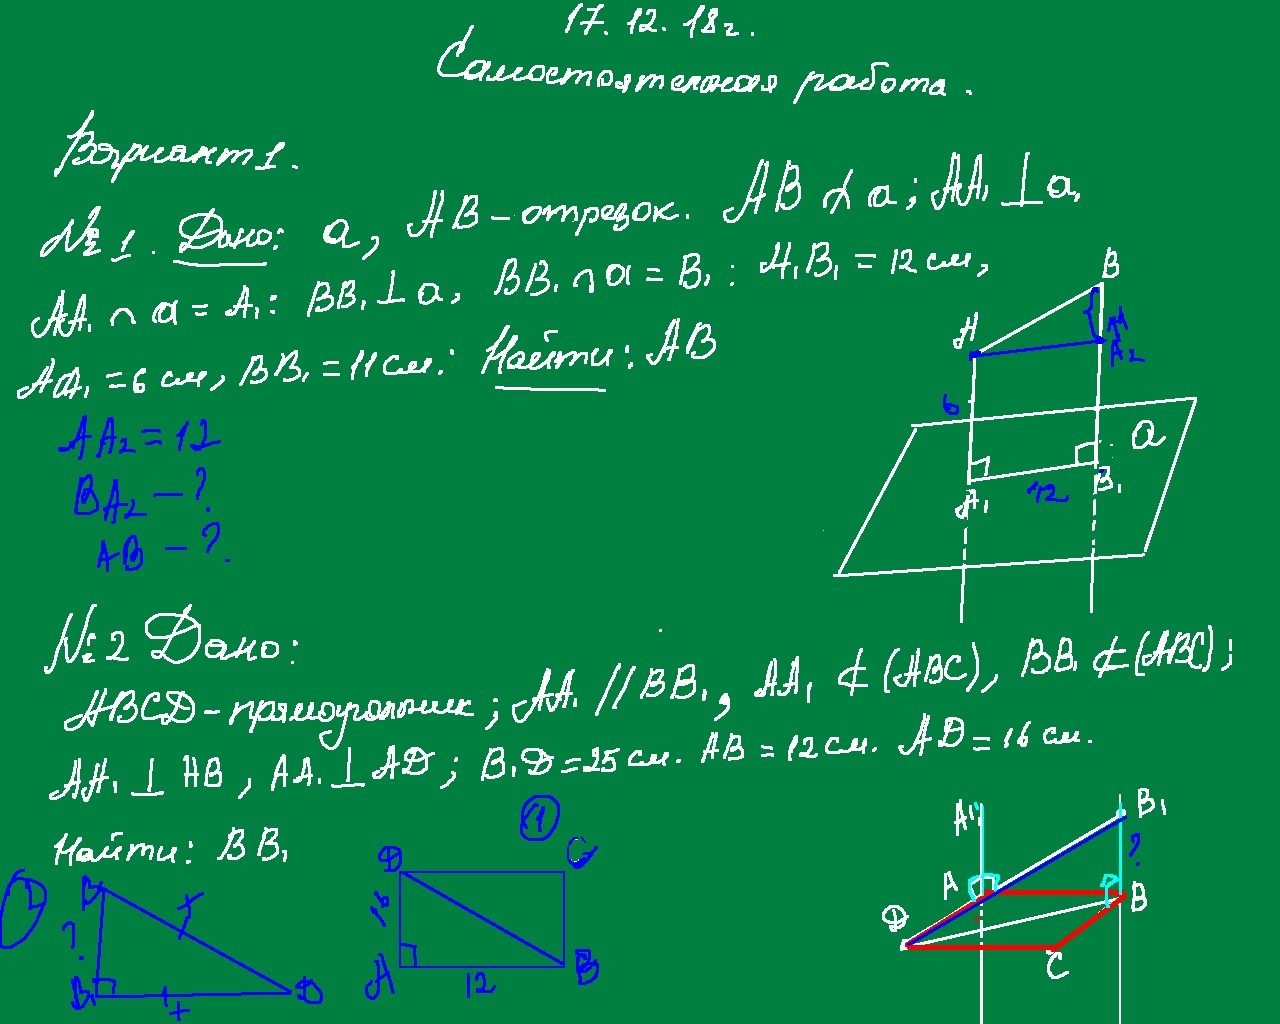 17. 12. 18г.
Самостоятельная работа.
Вариант 1.
№ 1. Дано: a, AB – отрезок. AB ⊀ a; AA₁ ⊥ a,
AA₁ ∩ a = A₁: BB₁ ⊥ a, BB₁ ∩ a = B₁: A₁B₁ = 12 см,
AA₁ = 6 см, BB₁ = 11 см: Найти: AB
AA₂ = 12
BA₂ – ?
AB – ?
B
A
A₂
6
a
A₁
12
B₁
№ 2 Дано:
ABCD – прямоугольник; AA₁ // BB₁, AA₁ ⊄ (ABC), BB₁ ⊄ (ABC);
AA₁ ⊥ AB, AA₁ ⊥ AD; B₁D = 25 см. AB = 12 см. AD = 16 см.
Найти: BB₁
B
+
?
B₁
+
D
1
D
C
16
A
12
B
A₁
B₁
?
A
B
D
C